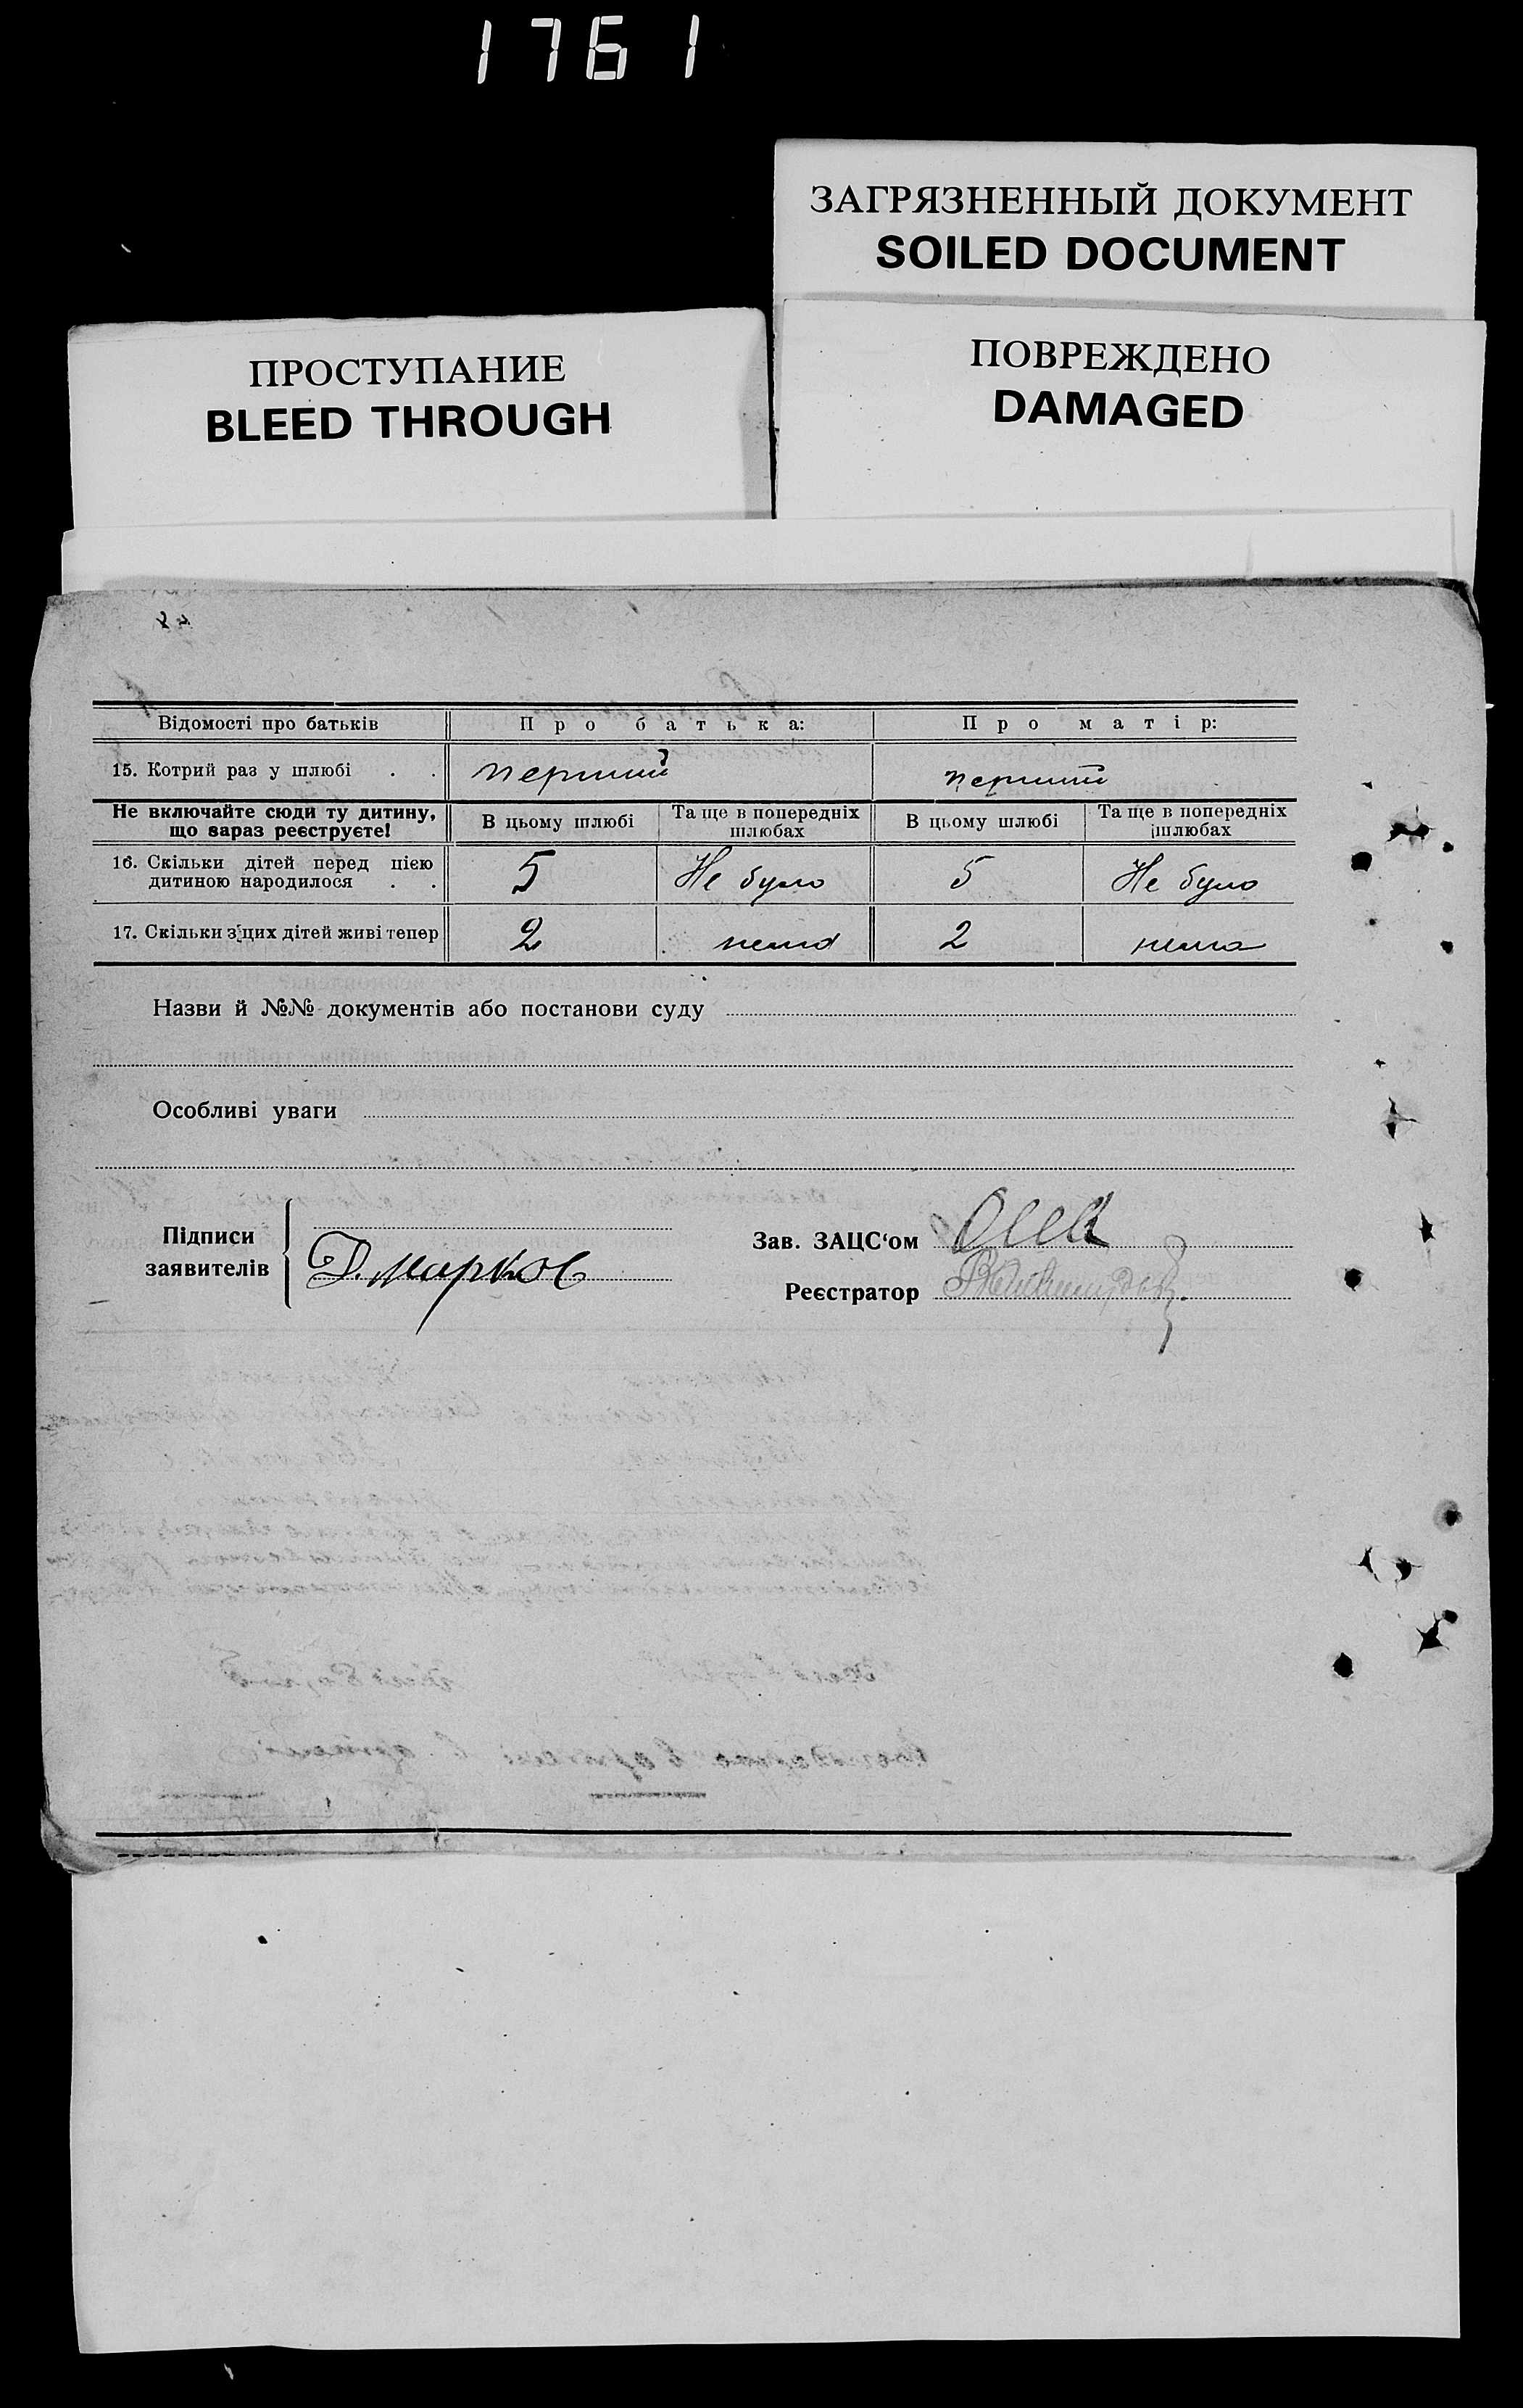 1761
ЗАГРЯЗНЕННЫЙ ДОКУМЕНТ
SOILED DOCUMENT
ПРОСТУПАНИЕ
BLEED THROUGH
ПОВРЕЖДЕНО
DAMAGED
Відомості про батьків Про батька: Про матір:
15. Котрий раз у шлюбі . . перший перший
Не включайте сюди ту дитину, що зараз реєструєте! В цьому шлюбі Та ще в попередніх шлюбах В цьому шлюбі Та ще в попередніх шлюбах
16. Скільки дітей перед цією
дитиною народилося . . 5 Не було 5 Не було
17. Скільки з цих дітей живі тепер 2 нема 2 нема
Назви й №№ документів або постанови суду
Особливі уваги
Підписи
заявителів
Д. Марков
Зав. ЗАЦС‘ом
Реєстратор